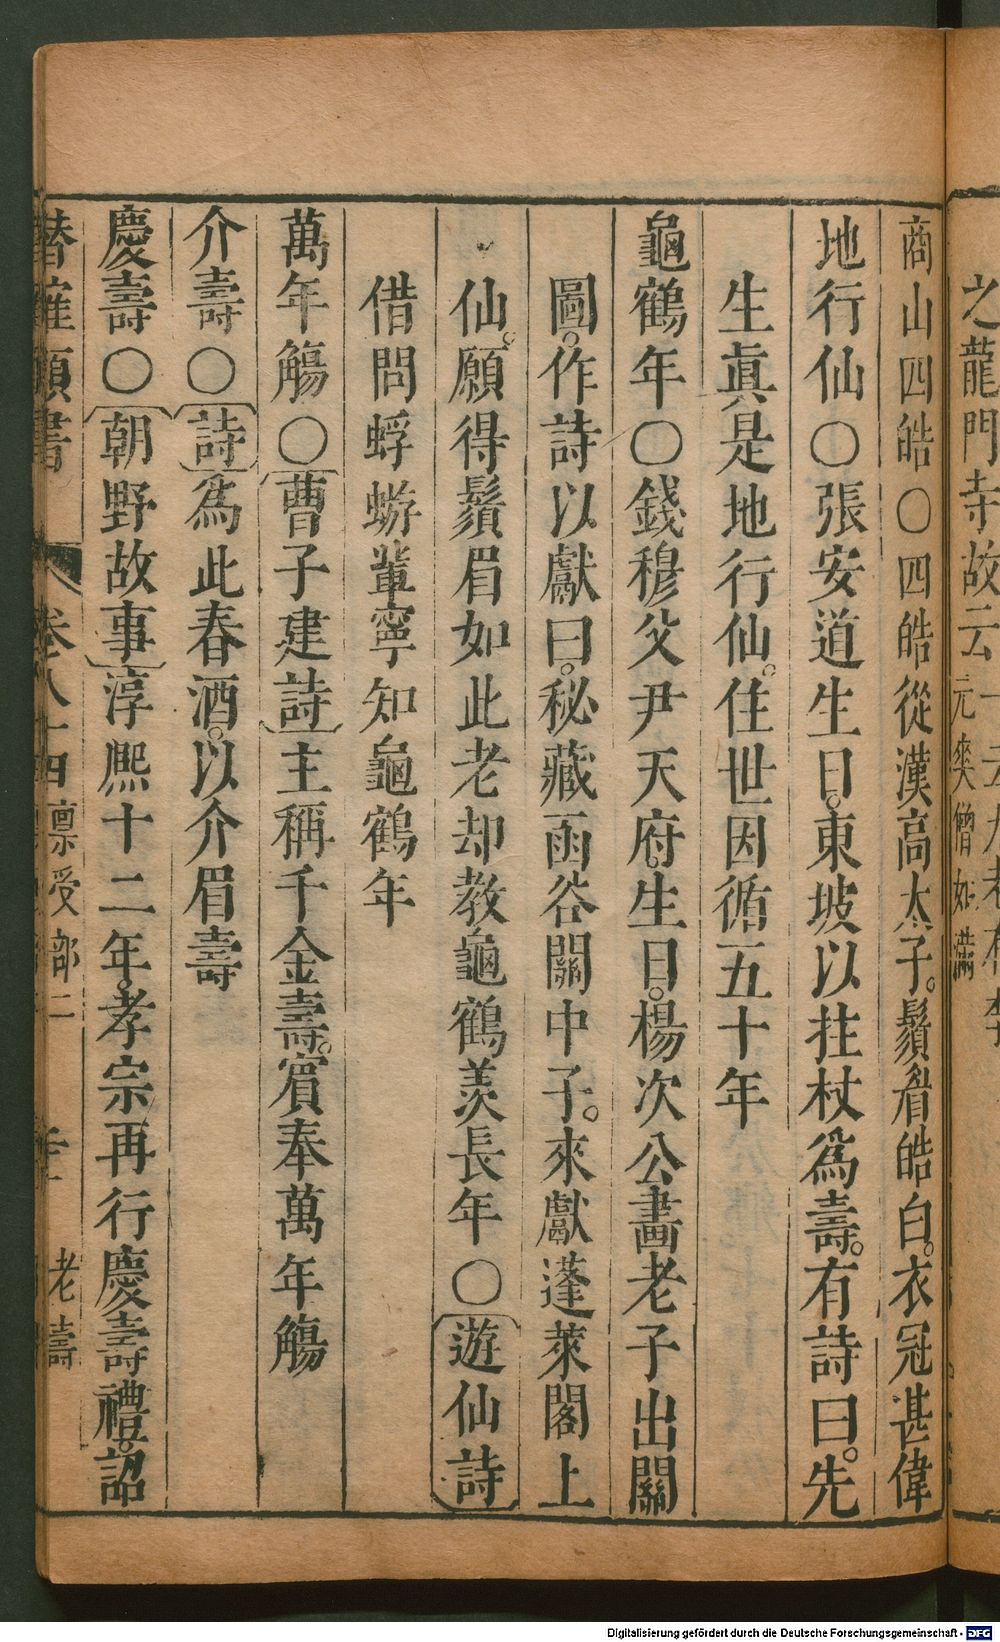 之龍門寺故云
元爽僧如滿
商山四皓○四皓從漢高太子。鬚眉皓白。衣冠甚偉
地行仙○張安道生日。東坡以拄杖爲壽。有詩曰。先
生眞是地行仙。住世因循五十年
龜鶴年○錢穆父尹天府。生日。楊次公畵老子出關
圖。作詩以獻曰。秘藏函谷關中子。來獻蓬萊閣上
仙。願得鬚眉如此老却教龜鶴羨長年○遊仙詩
借問蜉蝣輩寧知龜鶴年
萬年觴○曹子建詩主稱千金壽。賓奉萬年觴
介壽○詩爲此春酒。以介眉壽
慶壽○朝野故事淳熈十二年。孝宗再行慶壽禮。詔
卷八十四 禀受部二 老壽
Digitalisierung gefördert durch die Deutsche Forschungsgemeinschaft - DFG